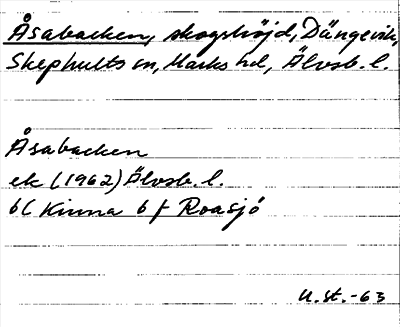 Åsabacken, skogshöjd, Dängevik,
Skephults sn, Marks hd, Älvsb. l.
Åsabacken
ek (1962) Älvsb. l.
6C Kinna 6 f Roasjö
U.st.-63